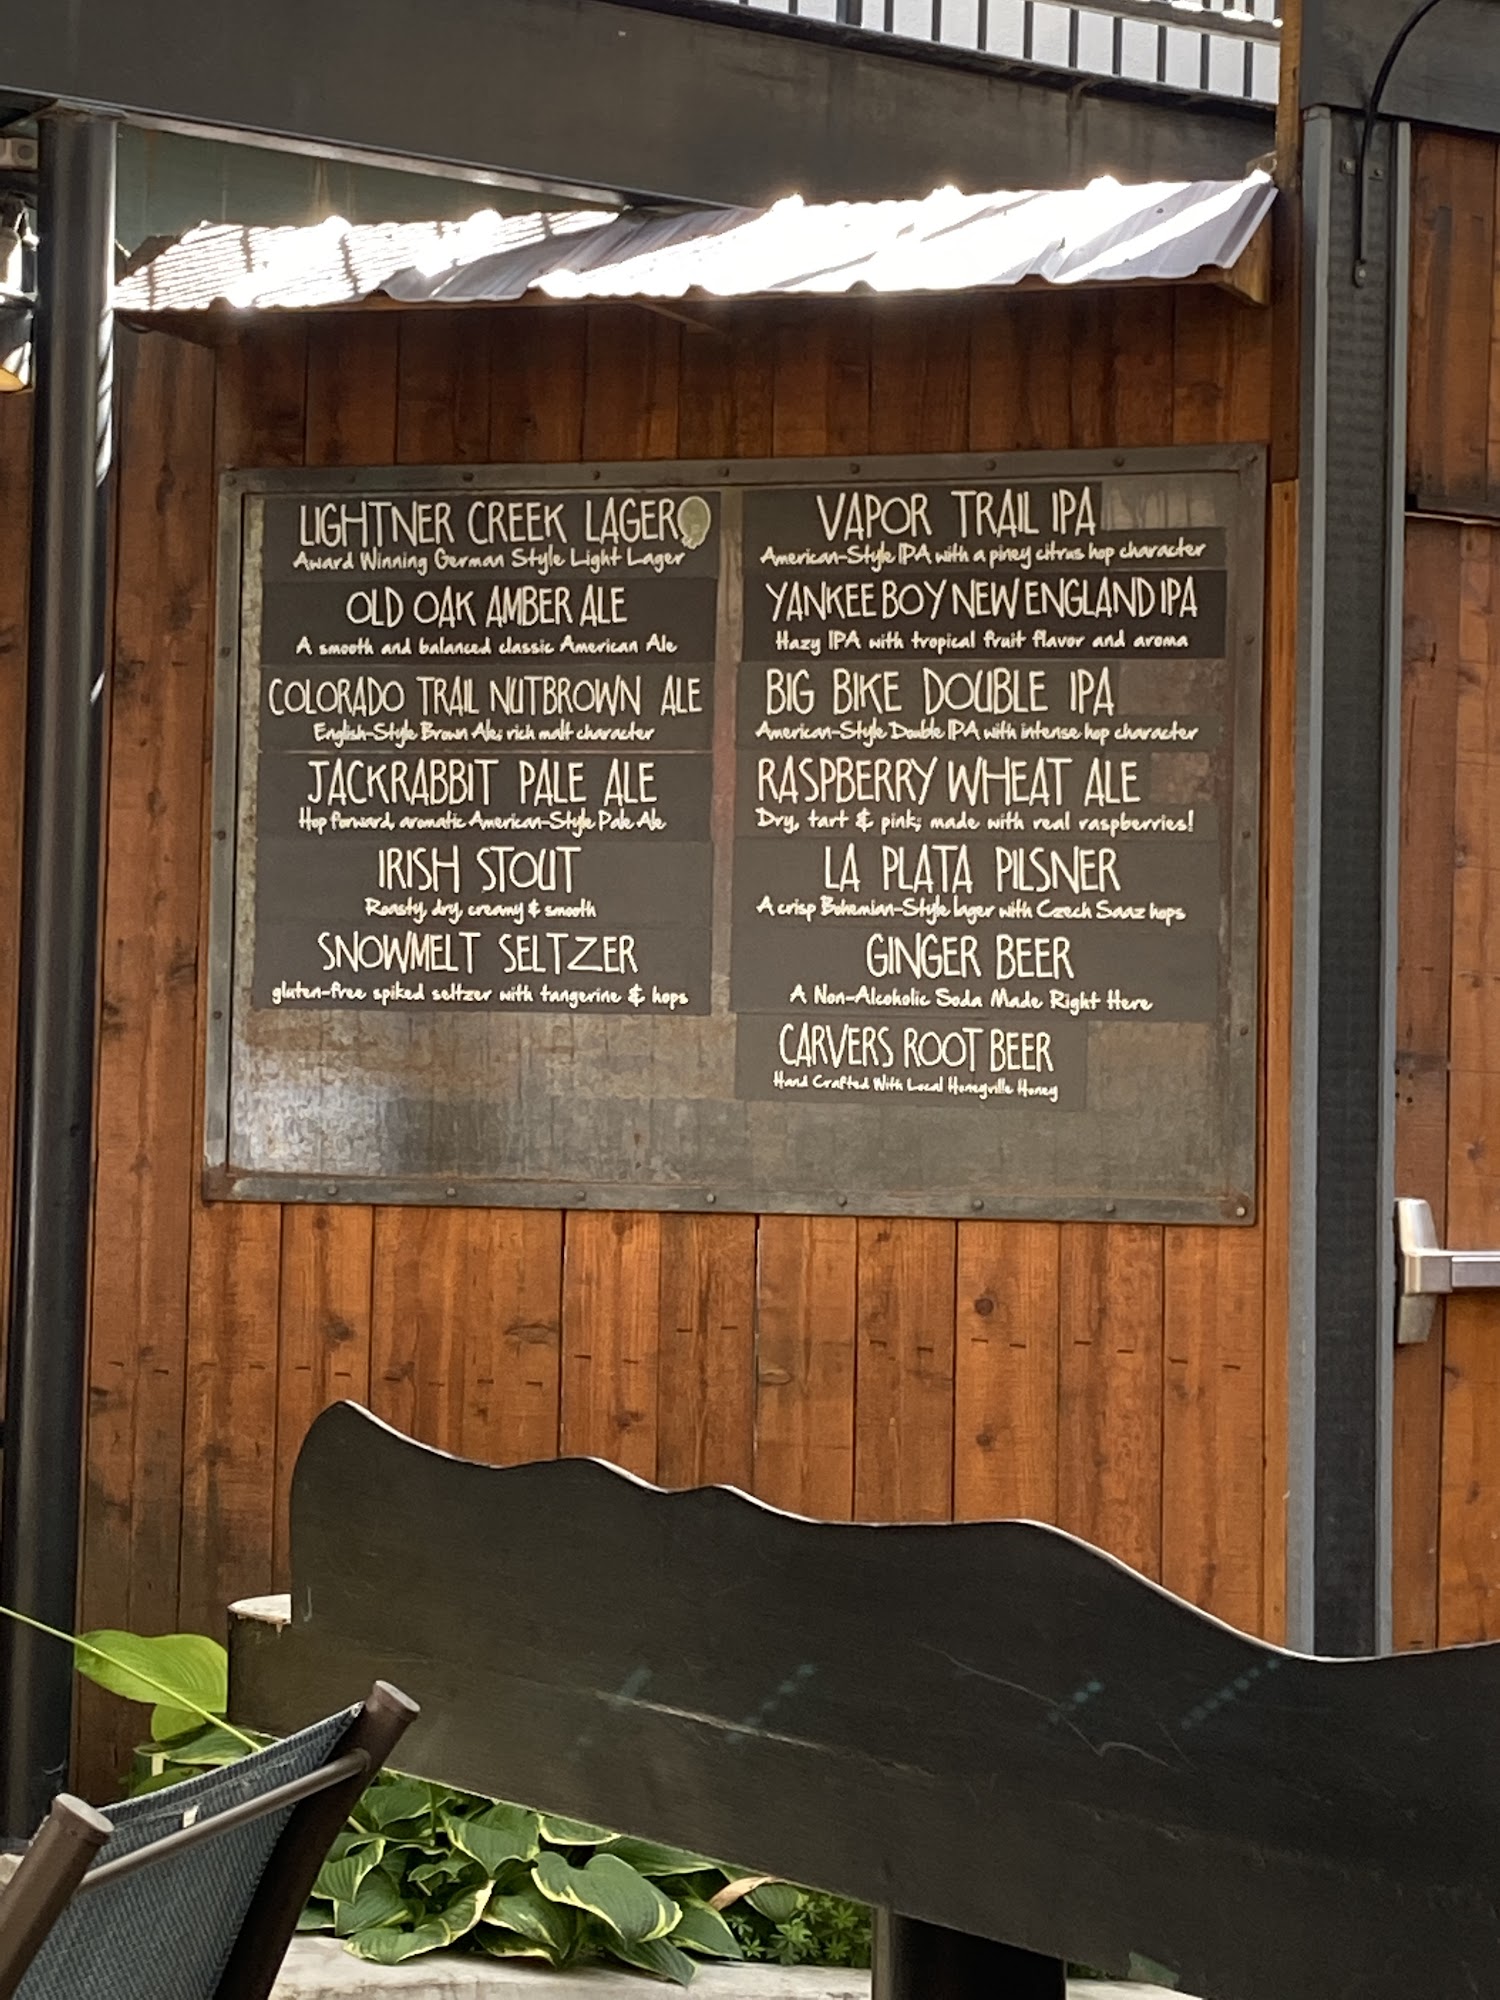 LIGHTNER CREEK LAGER
Award Winning German Style Light Lager
OLD OAK AMBER ALE
A smooth and balanced classic American Ale
COLORADO TRAIL NUTBROWN ALE
English-Style Brown Ale; rich malt character
JACKRABBIT PALE ALE
Hop forward, aromatic American-Style Pale Ale
IRISH STOUT
Roasty, dry, creamy & smooth
SNOWMELT SELTZER
gluten-free spiked seltzer with tangerine & hops
VAPOR TRAIL IPA
American-Style IPA with a piney citrus hop character
YANKEE BOY NEW ENGLAND IPA
Hazy IPA with tropical fruit flavor and aroma
BIG BIKE DOUBLE IPA
American-Style Double IPA with intense hop character
RASPBERRY WHEAT ALE
Dry, tart & pink; made with real raspberries!
LA PLATA PILSNER
A crisp Bohemian-Style lager with Czech Saaz hops
GINGER BEER
A Non-Alcoholic Soda Made Right Here
CARVERS ROOT BEER
Hand Crafted With Local Honeyville Honey